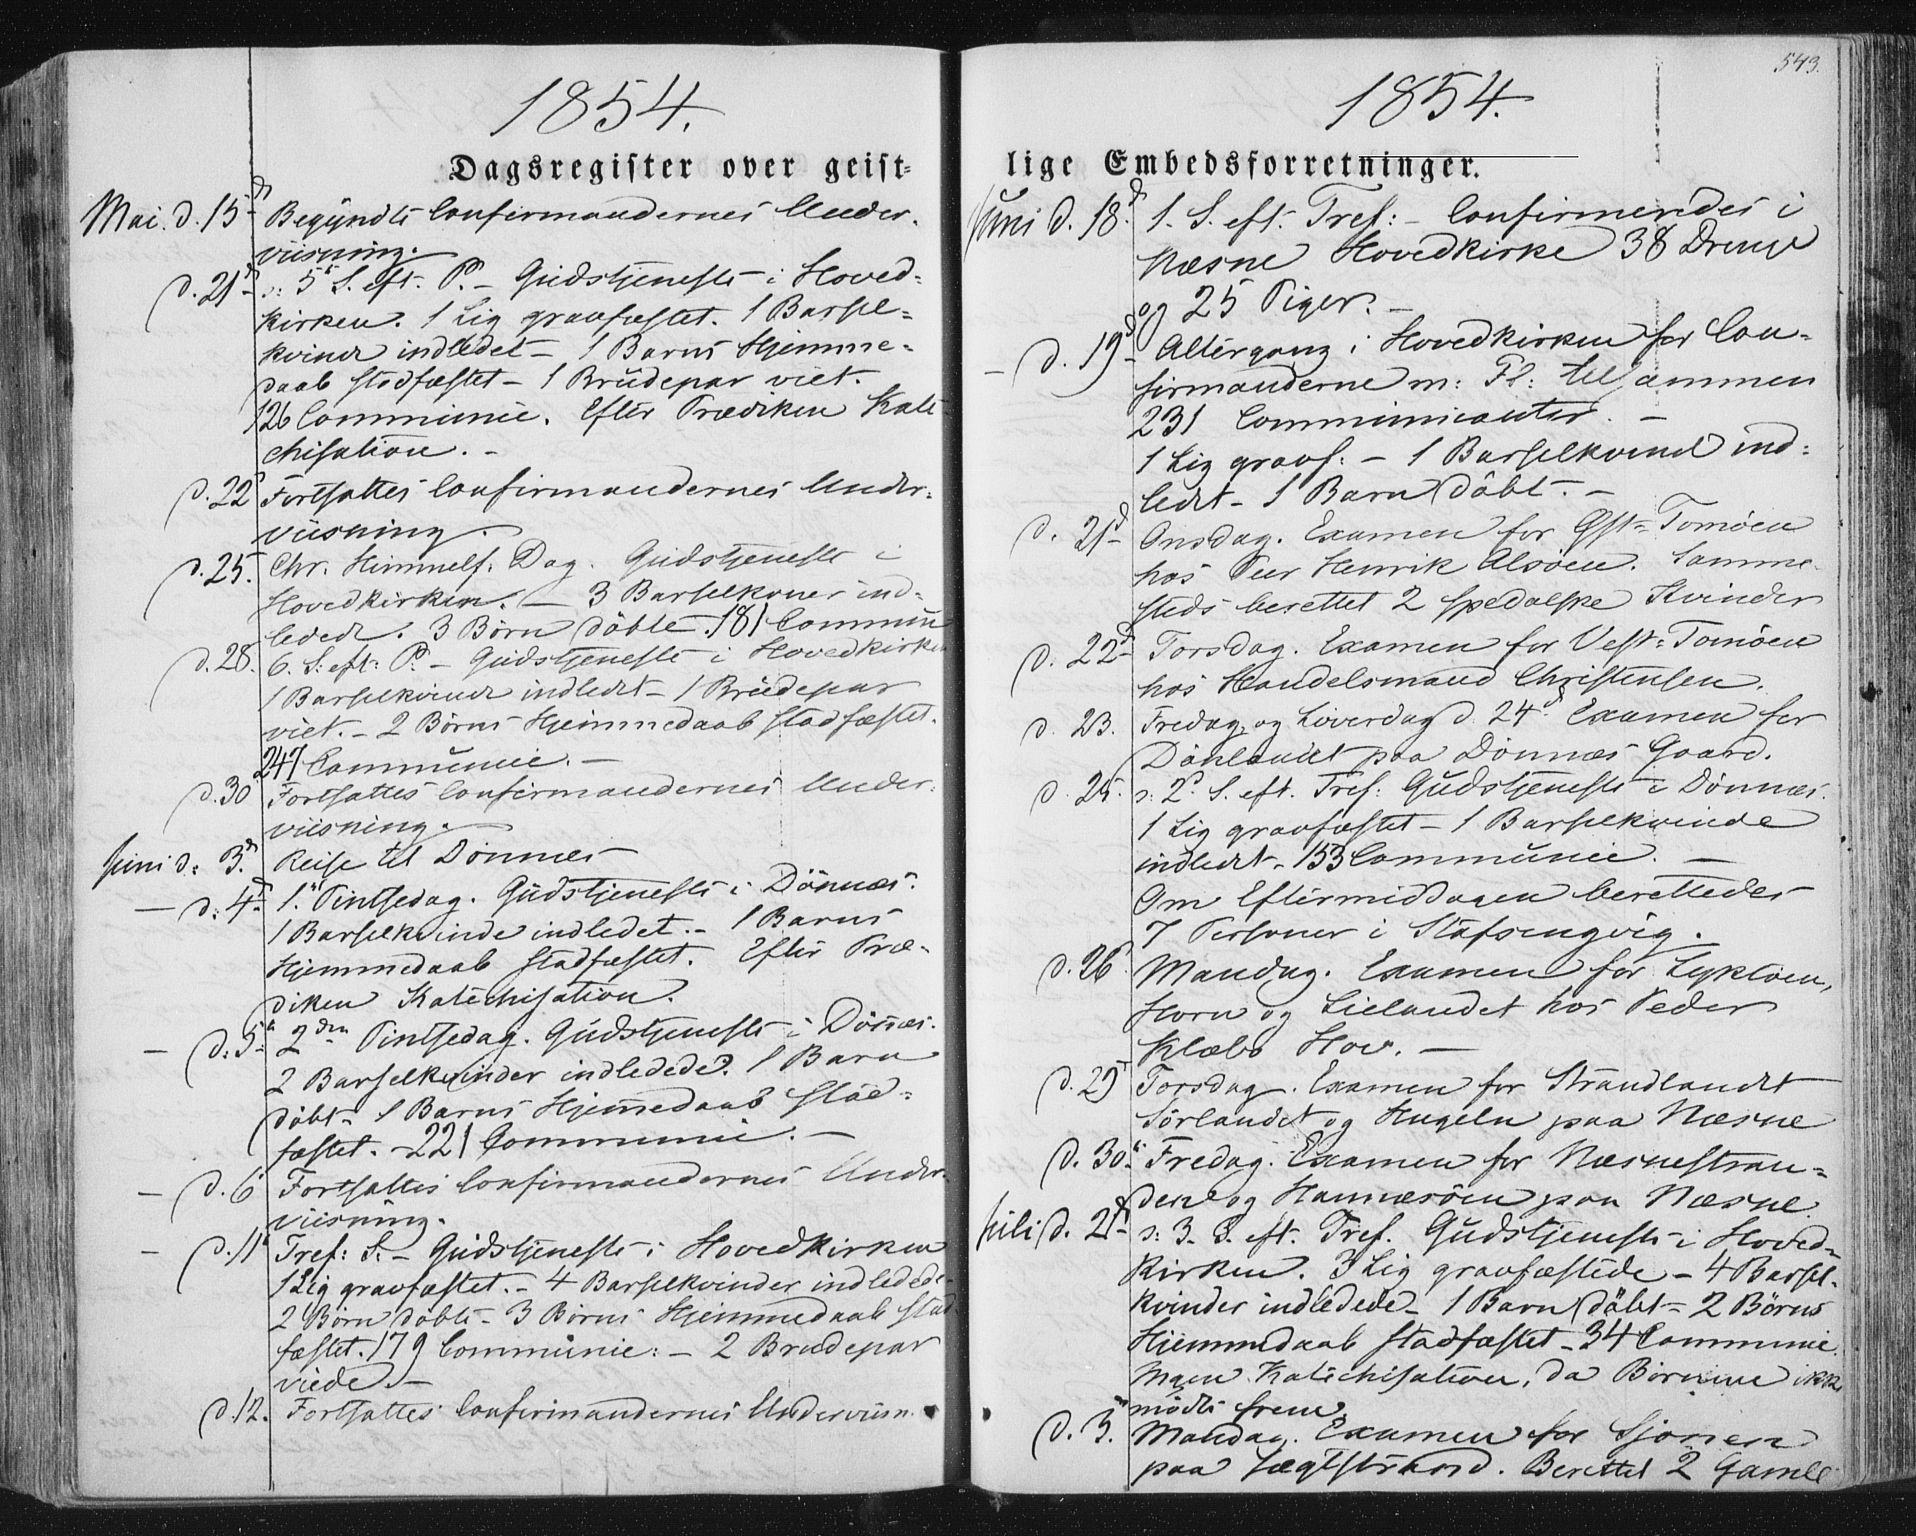 1854.
Dagsregister over geist-
Mai. d. 15d Begyndte Confirmandernes Under-
viisning.
d. 21d s: 5te S. eft. P. – Gudstjeneste i Hoved-
kirken. 1 Lig gravfæstet. 1 Barsel-
kvinde indledet – 1 Barns Hjemme-
daab stadfæstet – 1 Brudepar viet.
126 Communic. Efter Prædiken Kate-
chisation. –
d. 22 Fortsattes Confirmandernes Under-
viisning.
d. 25. Chr. Himmelf. Dag. Gudstjeneste i
Hovedkirken. – 3 Barselkoner ind-
ledede. 3 Børn døbte. 181 Commun
d. 28. 6. S. eft: P. – Gudstjeneste i Hovedkirken
1 Barselkvinde indledet – 1 Brudepar
viet. – 2 Børns Hjemmedaab stadfæstet.
247 Communic. –
d. 30 Fortsattes Confirmandernes Under-
viisning.
Juni d: 3d Reise til Dønnes
– d: 4d 1ste Pintsedag. Gudstjeneste i Dønnæs.
1 Barselkvinde indledet. – 1 Barns
Hjemmedaab stadfæstet. Efter Præ-
diken Katechisation.
– d: 5te 2den Pintsedag. Gudstjeneste i Dønnæs.
2 Barselkvinder indledede. 1 Barn
døbt – 1 Barns Hjemmedaab stad-
fæstet. – 221 Communic. –
– d. 6 Fortsattes Confirmandernes Under-
viisning.
– d. 11te Tref: S: – Gudstjeneste i Hovedkirken
1 Lig gravfæstet. – 4 Barselkvinder indledede
2 Børn døbte – 3 Børns Hjemmedaab stad
fæstet. 179 Communic: – 2 Brudepar
viede. –
d. 12. Fortsattes Confirmandernes Underviisn.
543.
1854.
lige Embedsforretninger.
Juni d. 18d 1. S. eft. Tref: – Confirmeredes i
Næsne Hovedkirke 38 Drenge
og 25 Piger. –
– d. 19d Altergang i Hovedkirken for Con-
firmanderne m: Fl: tilsammen
231 Communicanter. –
1 Lig gravf: – 1 Barselkvind ind-
ledet – 1 Barn døbt. –
d. 21d Onsdag. Examen for Øst-Tomøen
hos Peer Henrik Alsøen. Samme-
steds berettet 2 spedalske Kvinder
d. 22d Torsdag. Examen for Vest-Tomøen
hos Handelsmand Christensen.
d. 23. Fredag og Løverdag d. 24d Examen for
Dønlandet paa Dønnæs Gaard.
d. 25. s: 2d S. eft. Tref: Gudstjeneste i Dønnæs.
1 Lig gravfæstet – 1 Barselkvinde
indledet – 153 Communic. –
Om Eftermiddagen berettedes
7 Personer i Stafsengvig.
d. 26 Mandag. Examen for Løktøen,
Horn og Lielandet hos Peder
Klæbo Hov. –
d. 29 Torsdag. Examen for Strandlandet
Sørlandet og Hugeln paa Næsne
d. 30te Fredag. Examen for Næsnestran-
den og Hannæsøen paa Næsne
Juli d. 2d s: 3. S. eft. Tref. Gudstjeneste i Hoved-
kirken. 3 Lig gravfæstede – 4 Barsel-
kvinder indledede – 1 Barn døbt – 2 Børns
Hjemmedaab stadfæstet – 34 Communic.
Ingen Katechisation, da Børnene ikke
mødte frem.
d. 3. Mandag. Examen for Sjonen
paa Lægtstrand. Berettet 2 Gamle